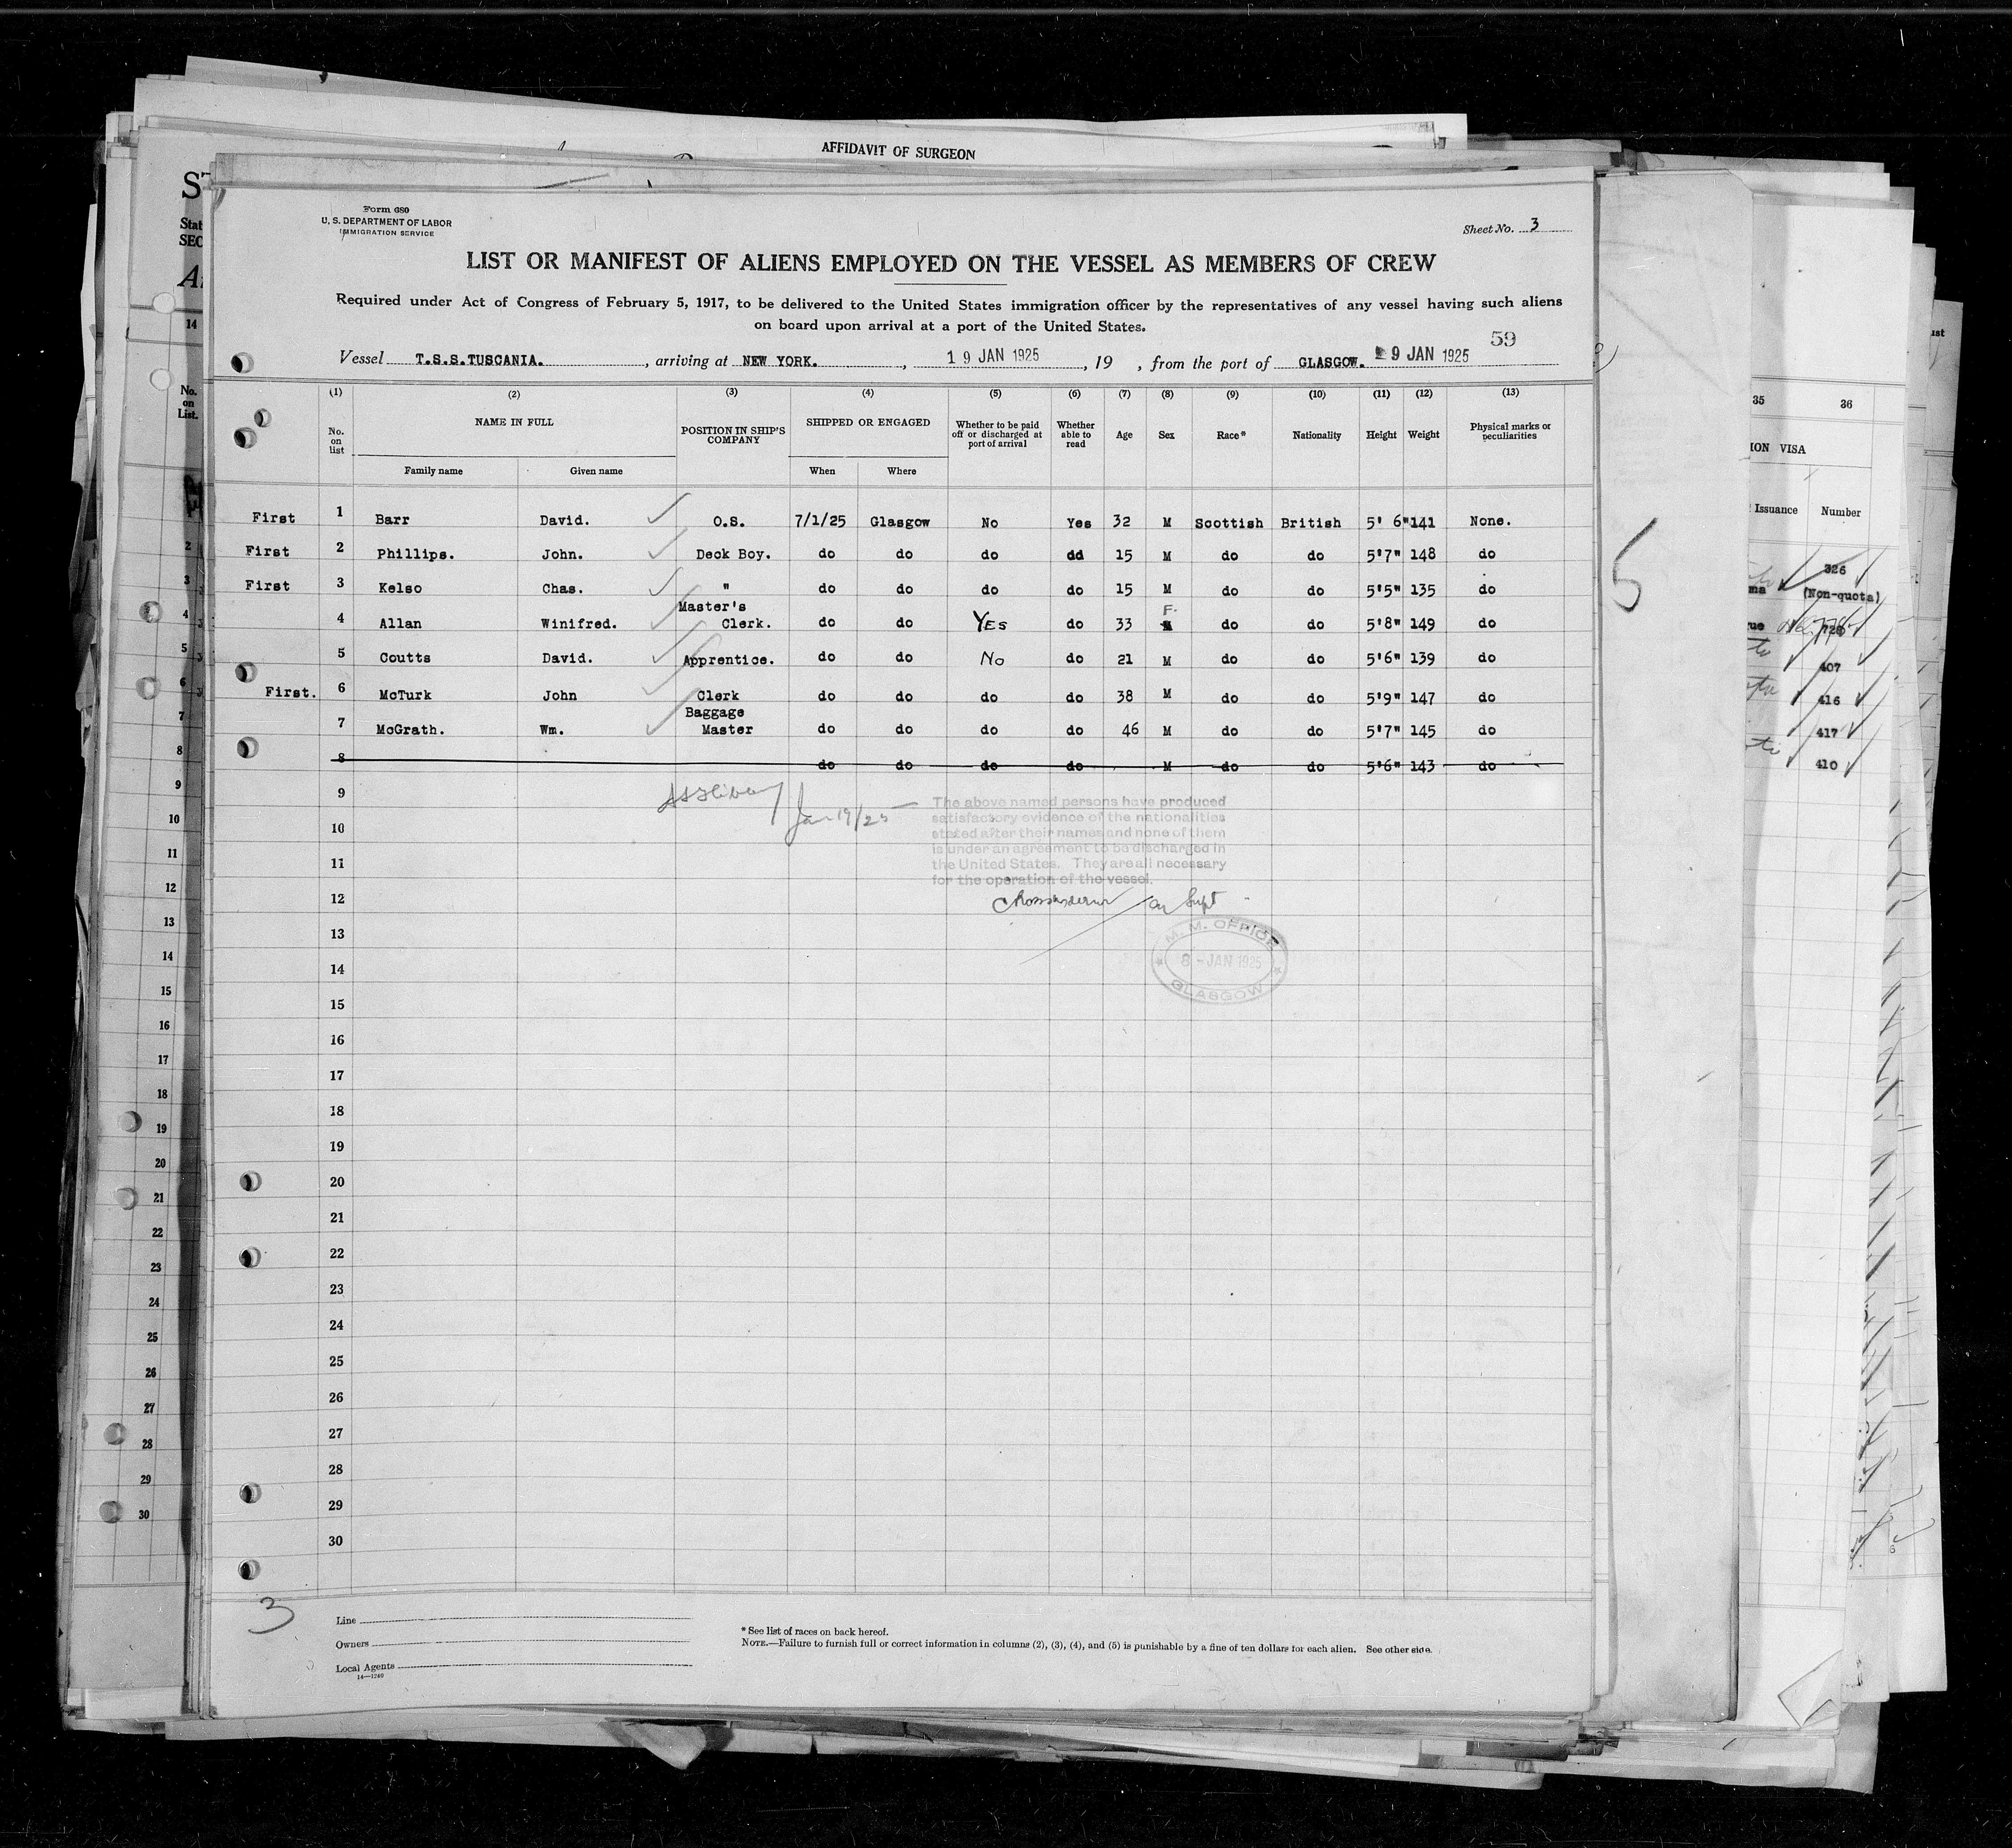 AFFIDAVIT OF SURGEON
Form 680
U. S. DEPARTMENT OF LABOR
IMMIGRATION SERVICE
Sheet No. 3
LIST OR MANIFEST OF ALIENS EMPLOYED ON THE VESSEL AS MEMBERS OF CREW
Required under Act of Congress of February 5, 1917, to be delivered to the United States immigration officer by the representatives of any vessel having such aliens
on board upon arrival at a port of the United States.
59
Vessel T.S.S.TUSCANIA. , arriving at NEW YORK. , 19 JAN 1925 , 19 , from the port of GLASGOW. 9 JAN 1925
(1) (2) (3) (4) (5) (6) (7) (8) (9) (10) (11) (12) (13)
No. on list NAME IN FULL POSITION IN SHIP'S COMPANY SHIPPED OR ENGAGED Whether to be paid off or discharged at port of arrival Whether able to read Age Sex Race* Nationality Height Weight Physical marks or peculiarities
Family name Given name When Where
First 1 Barr David. O.S. 7/1/25 Glasgow No Yes 32 M Scottish British 5' 6" 141 None.
First 2 Phillips. John. Deck Boy. do do do do 15 M do do 5'7" 148 do
First 3 Kelso Chas. " do do do do 15 M do do 5'5" 135 do
4 Allan Winifred. Master's Clerk. do do YES do 33 F. do do 5'8" 149 do
5 Coutts David. Apprentice. do do No do 21 M do do 5'6" 139 do
First. 6 McTurk John Clerk do do do do 38 M do do 5'9" 147 do
7 McGrath. Wm. Baggage Master do do do do 46 M do do 5'7" 145 do
8 do do do do M do do 5'6" 143 do
9
Jan 19/25
The above named persons have produced
satisfactory evidence of the nationalities
stated after their names and none of them
is under an agreement to be discharged in
the United States. They are all necessary
for the operation of the vessel.
10
11
12
Supt
M. M. OFFICE
8 - JAN 1925
GLASGOW
13
14
15
16
17
18
19
20
21
22
23
24
25
26
27
28
29
30
3
Line
Owners
Local Agents
14—1240
* See list of races on back hereof.
NOTE.—Failure to furnish full or correct information in columns (2), (3), (4), and (5) is punishable by a fine of ten dollars for each alien. See other side.
No.
on
List.
14
2
3
4
5
6
7
8
9
10
11
12
13
14
15
16
17
18
19
20
21
22
23
24
25
26
27
28
29
30
5
35 36
ION VISA
Issuance Number
326
(Non-quota)
407
416
417
410